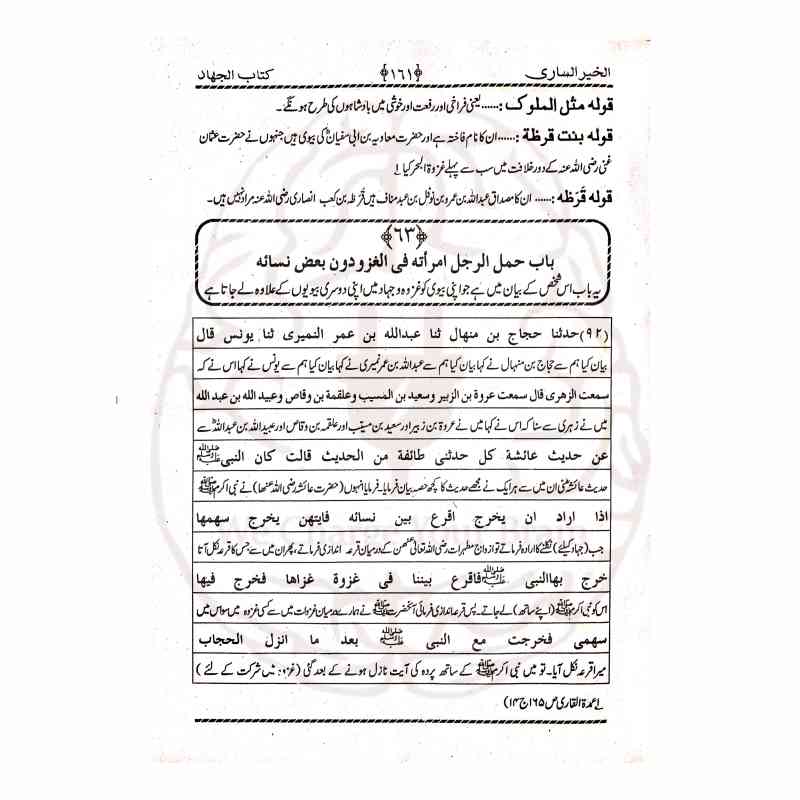 الخیر الساری ﴿۱۶۱﴾ کتاب الجهاد
قوله مثل الملوک :...... یعنی فراخی اور رفعت اور خوشی میں بادشاہوں کی طرح ہونگے۔
قوله بنت قرظة :...... ان کا نام فاختہ ہے اور حضرت معاویہ بن ابی سفیانؓ کی بیوی ہیں جنہوں نے حضرت عثمان
غنی رضی اللہ عنہ کے دور خلافت میں سب سے پہلے غزوة البحر کیا ۱؎
قوله قَرَظه :...... ان کا مصداق عبداللہ بن عمرو بن نوفل بن عبد مناف ہیں قُرظہ بن کعب انصاری رضی اللہ عنہ مراد نہیں ہیں۔
﴿۶۳﴾
باب حمل الرجل امرأته فی الغزو دون بعض نسائه
یہ باب اس شخص کے بیان میں ہے جو اپنی بیوی کو غزوہ وجہاد میں اپنی دوسری بیویوں کے علاوہ لے جاتا ہے
(۹۲) حدثنا حجاج بن منهال ثنا عبدالله بن عمر النمیری ثنا یونس قال
بیان کیا ہم سے حجاج بن منہال نے کہا بیان کیا ہم سے عبداللہ بن عمر نمیری نے کہا بیان کیا ہم سے یونس نے کہا اس نے کہ
سمعت الزهری قال سمعت عروة بن الزبیر وسعید بن المسیب وعلقمة بن وقاص وعبید الله بن عبد الله
میں نے زہری سے سنا کہ اس نے کہا میں نے عروہ بن زبیر اور سعید بن مسیب اور علقمہ بن وقاص اور عبید اللہ بن عبد اللہؓ سے
عن حدیث عائشة کل حدثنی طائفة من الحدیث قالت کان النبیﷺ
حدیث عائشہؓ سنی ان میں سے ہر ایک نے مجھے حدیث کا کچھ حصہ بیان فرمایا۔ فرمایا انہوں (حضرت عائشہ رضی اللہ عنھا) نے نبی اکرمﷺ
اذا اراد ان یخرج اقرع بین نسائه فایتهن یخرج سهمها
جب (جہاد کیلئے) نکلنے کا ارادہ فرماتے تو ازواج مطہرات رضی اللہ تعالیٰ عنھن کے درمیان قرعہ اندازی فرماتے، پھر ان میں سے جس کا قرعہ نکل آتا
خرج بهاالنبی ﷺفاقرع بیننا فی غزوة غزاها فخرج فیها
اس کو نبی اکرمﷺ (اپنے ساتھ) لے جاتے۔ پس قرعہ اندازی فرمائی آنحضرتﷺ نے ہمارے درمیان غزوات میں سے کسی غزوہ میں سو اس میں
سهمی فخرجت مع النبی ﷺ بعد ما انزل الحجاب
میرا قرعہ نکل آیا۔ تو میں نبی اکرمﷺ کے ساتھ پردہ کی آیت نازل ہونے کے بعد گئی (غزوہ میں شرکت کے لئے )
۱؎ عمدة القاری ص ۱۶۵ ج ۱۴)